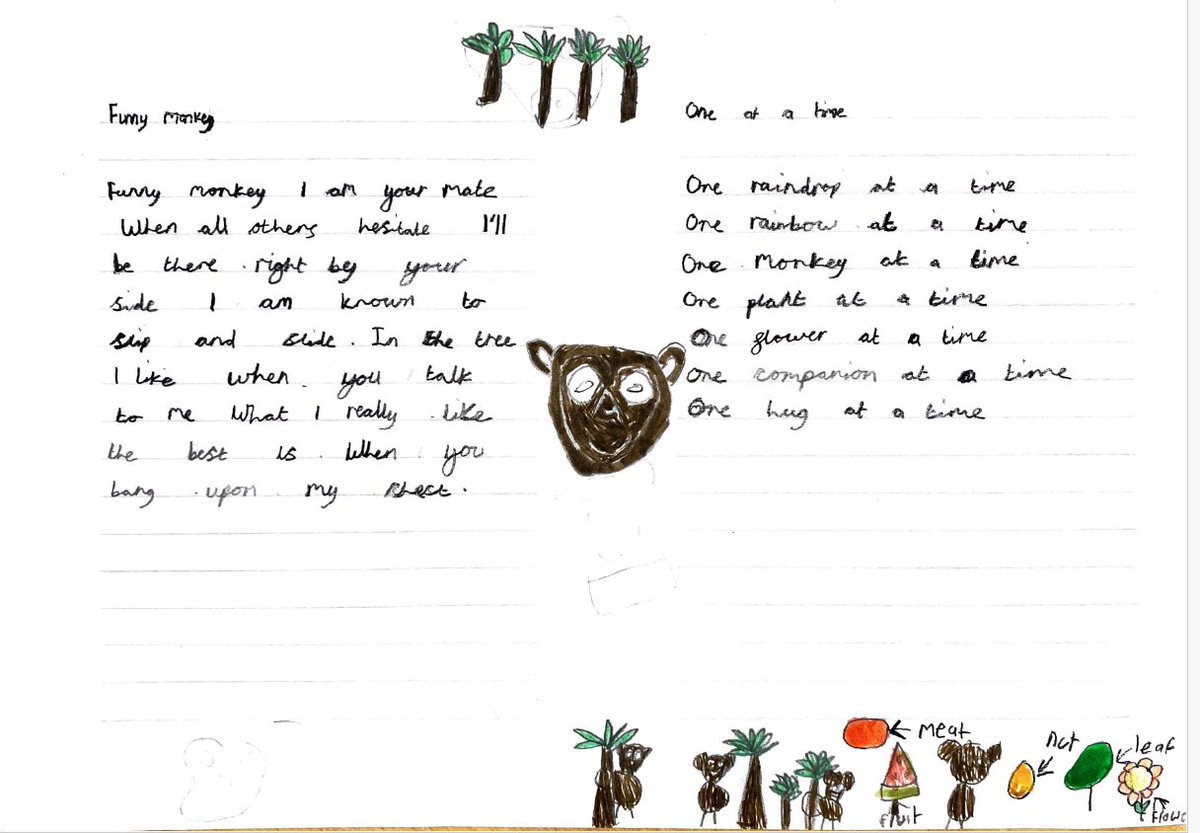 Funny monkey
Funny monkey I am your mate
When all others hesitate I'll
be there right by your
side I am known to
slip and slide. In the tree
I like when you talk
to me What I really like
the best is When you
bang upon my chest.
One at a time
One raindrop at a time
One rainbow at a time
One monkey at a time
One plant at a time
One flower at a time
One companion at a time
One hug at a time
meat
nut
leaf
fruit